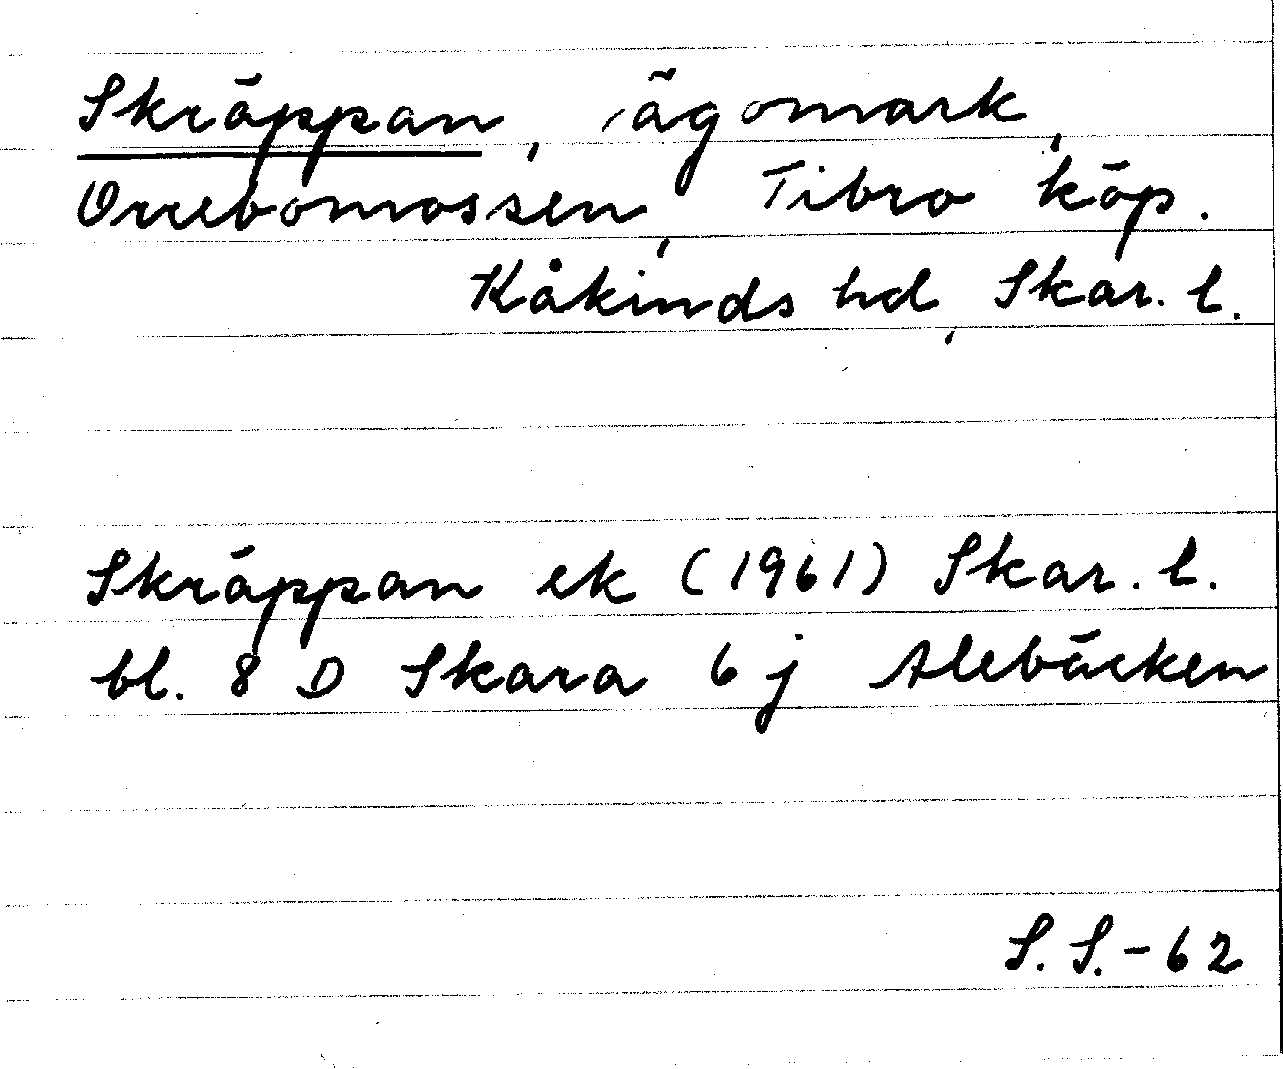 Skräppan, ägomark,
Orrebomossen, Tibro köp.
Kåkinds hd, Skar. l.
Skräppan ek (1961) Skar. l.
bl. 8 D Skara 6 j Alebäcken
S. S. - 62